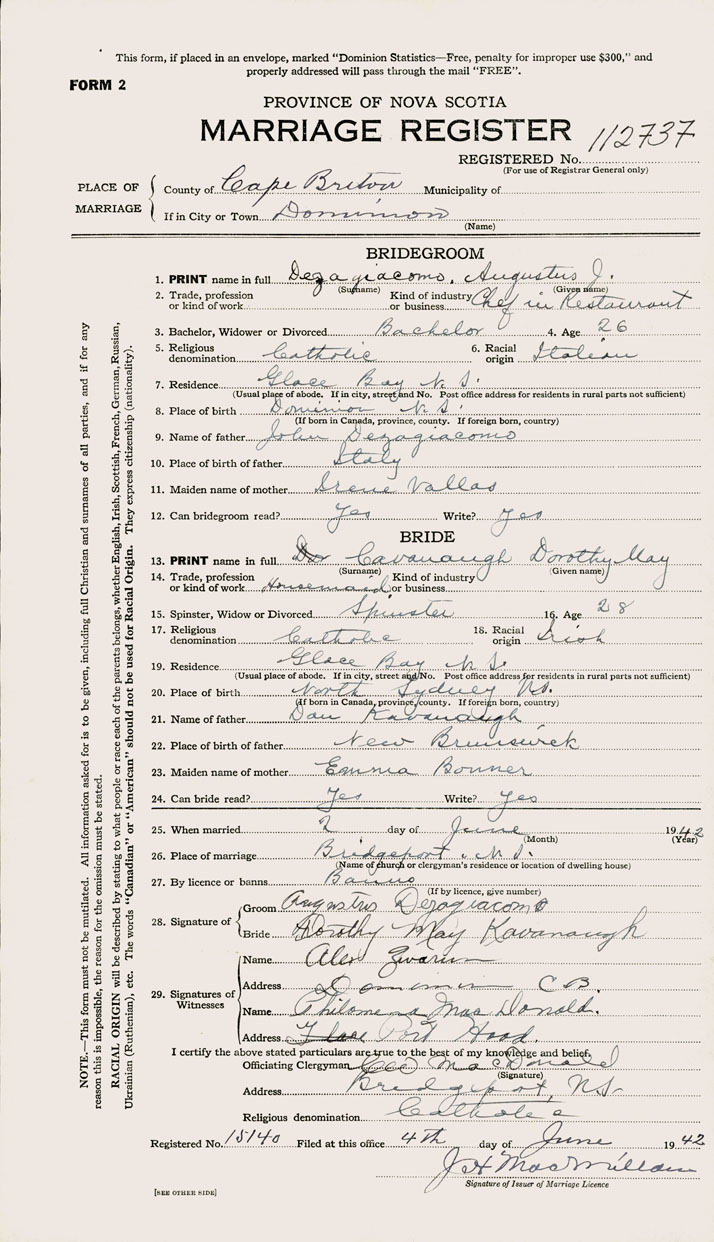 This form, if placed in an envelope, marked “Dominion Statistics—Free, penalty for improper use $300,” and
properly addressed will pass through the mail “FREE”.
FORM 2
PROVINCE OF NOVA SCOTIA
MARRIAGE REGISTER
112737
REGISTERED No.
(For use of Registrar General only)
PLACE OF MARRIAGE
County of Cape Breton Municipality of
If in City or Town Dominion
(Name)
BRIDEGROOM
1. PRINT name in full Dezagiacomo, Augustus J.
(Surname) (Given name)
2. Trade, profession or kind of work Kind of industry or business Chef in Restaurant
3. Bachelor, Widower or Divorced Bachelor 4. Age 26
5. Religious denomination Catholic 6. Racial origin Italian
7. Residence Glace Bay N.S.
(Usual place of abode. If in city, street and No. Post office address for residents in rural parts not sufficient)
8. Place of birth Dominion N.S.
(If born in Canada, province, county. If foreign born, country)
9. Name of father John Dezagiacomo
10. Place of birth of father Italy
11. Maiden name of mother Irene Vallas
12. Can bridegroom read? Yes Write? Yes
BRIDE
13. PRINT name in full Cavanaugh Dorothy May
(Surname) (Given name)
14. Trade, profession or kind of work Housemaid Kind of industry or business
15. Spinster, Widow or Divorced Spinster 16. Age 28
17. Religious denomination Catholic 18. Racial origin Irish
19. Residence Glace Bay N.S.
(Usual place of abode. If in city, street and No. Post office address for residents in rural parts not sufficient)
20. Place of birth North Sydney NS.
(If born in Canada, province, county. If foreign born, country)
21. Name of father Dan Kavanaugh
22. Place of birth of father New Brunswick
23. Maiden name of mother Emma Bonner
24. Can bride read? Yes Write? Yes
25. When married 2 day of June 1942
(Month) (Year)
26. Place of marriage Bridgeport, N.S.
(Name of church or clergyman's residence or location of dwelling house)
27. By licence or banns Banns
(If by licence, give number)
28. Signature of
Groom Augustus Dezagiacomo
Bride Dorothy May Kavanaugh
29. Signatures of Witnesses
Name Alex
Address Dominion C.B.
Name Philomena MacDonald.
Address Port Hood.
I certify the above stated particulars are true to the best of my knowledge and belief.
Officiating Clergyman MacDonald
(Signature)
Address Bridgeport, NS
Religious denomination Catholic
Registered No. 15140 Filed at this office 4th day of June 1942
J H MacMillan
Signature of Issuer of Marriage Licence
[SEE OTHER SIDE]
NOTE.—This form must not be mutilated. All information asked for is to be given, including full Christian and surnames of all parties, and if for any
reason this is impossible, the reason for the omission must be stated.
RACIAL ORIGIN will be described by stating to what people or race each of the parents belongs, whether English, Irish, Scottish, French, German, Russian,
Ukrainian (Ruthenian), etc. The words “Canadian” or “American” should not be used for Racial Origin. They express citizenship (nationality).